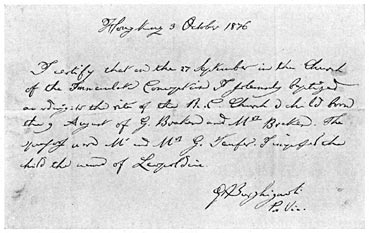 Hongkong 3 October 1876
I certify that on the 27 September in the Church
of the Immaculate Conception I solemnly baptized
according to the rite of the R.C. Church a child born
the 9 August of G. Bockerd and Mrs Bockerd. The
were Mr and Mrs G. I imposed the
child the name of Leopoldine